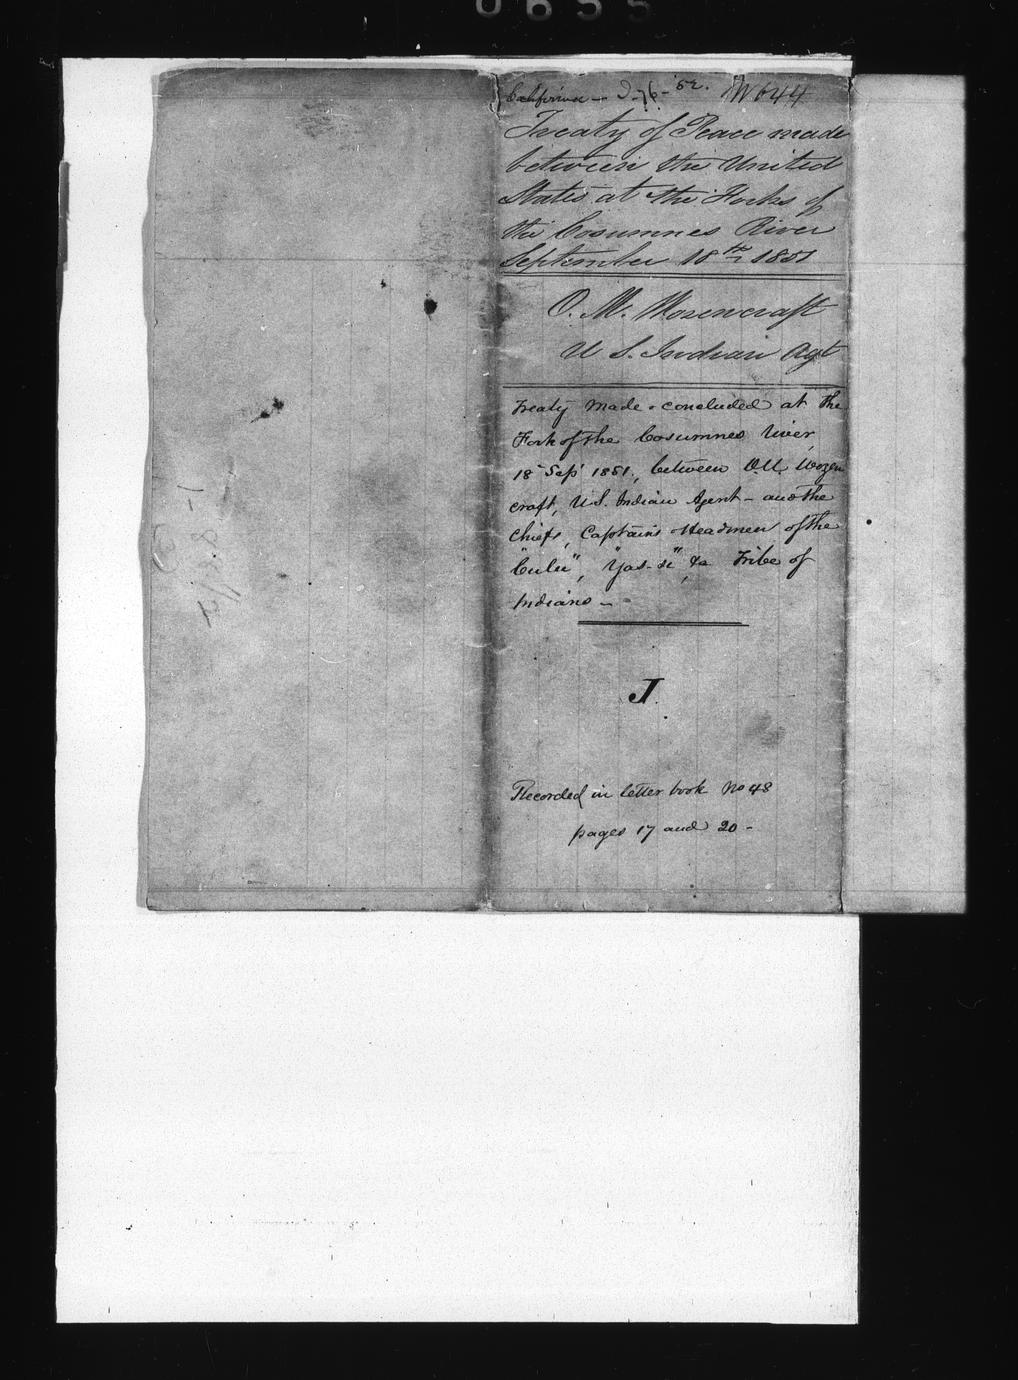 0655
California - I-76-'52. W644
Treaty of Peace made
between the United
States at the Forks of
the Cosumnes River
September 18th 1851
O. M. Wozencraft
U S. Indian Agt
Treaty made & concluded at the
Fork of the Cosumnes River,
18 Sep' 1851, between O.M. Wozen
craft, U.S. Indian Agent - and the
Chiefs, Captains & Headmen of the
"Culu", "Yas-si", &c Tribe of
Indians -
J.
Recorded in letter book No 48
pages 17 and 20 -